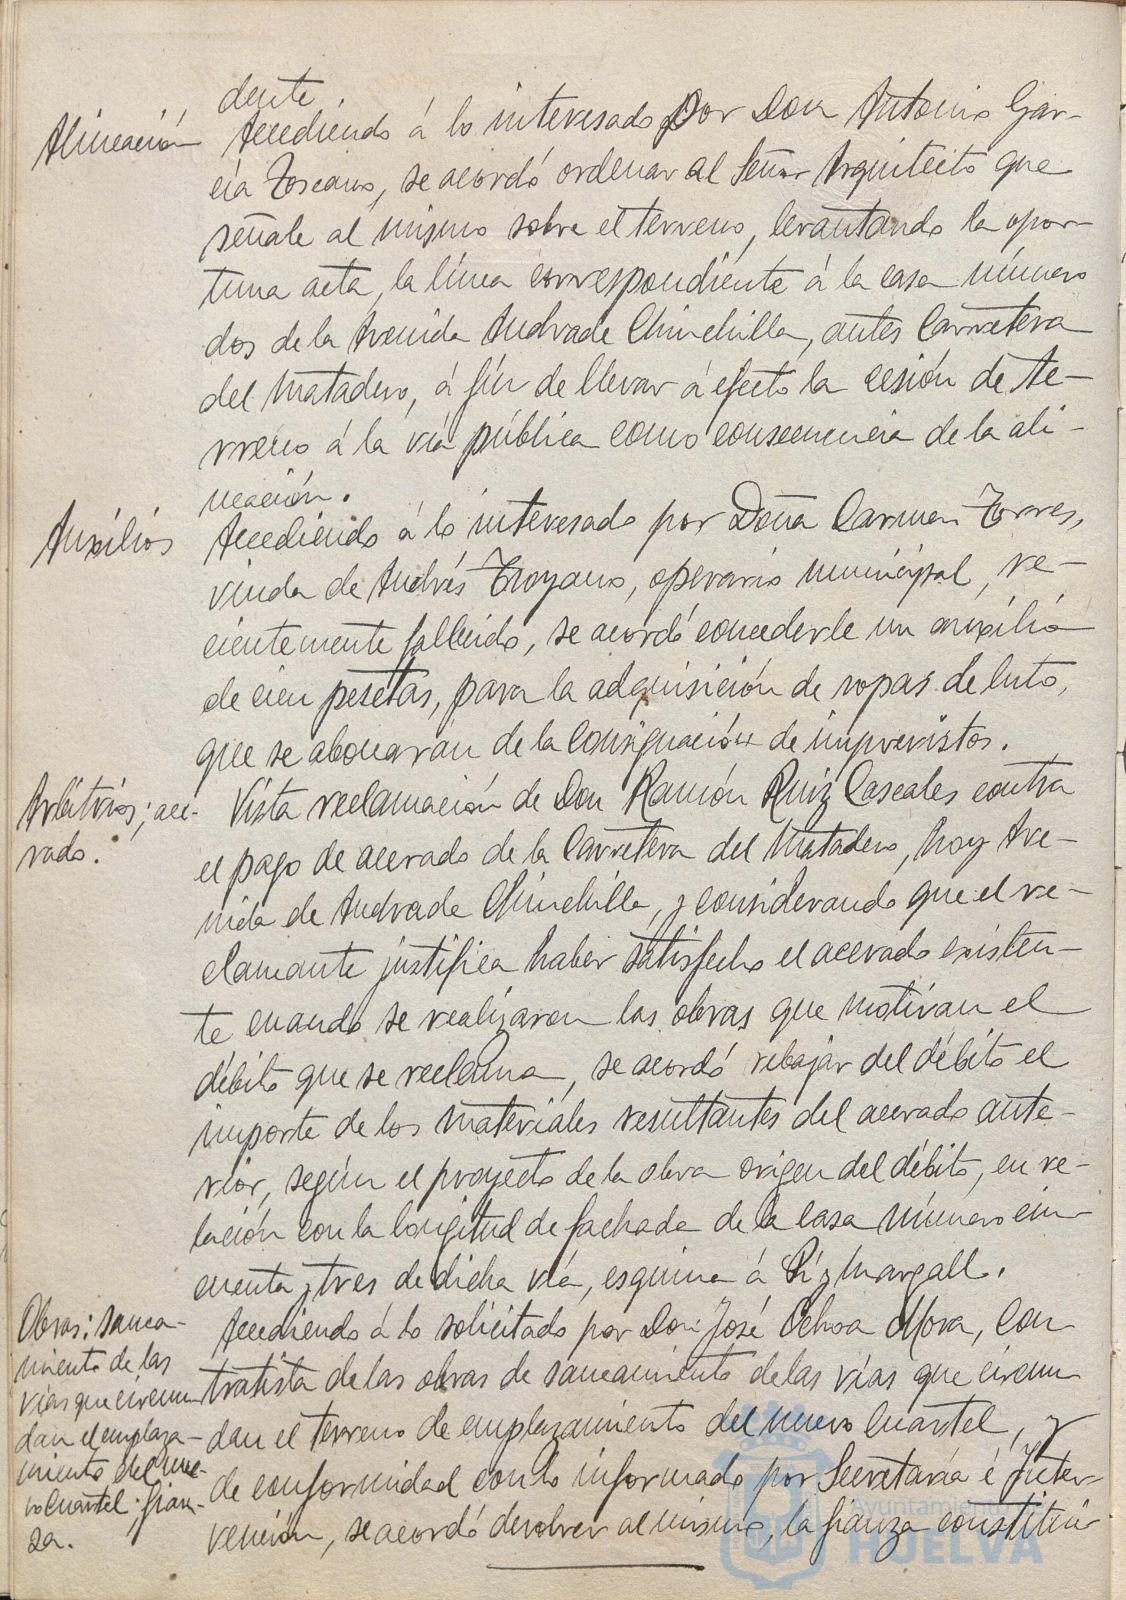 dente
Alineación
Accediendo á lo interesado por Don Antonio Gar-
cía Toscano, se acordó ordenar al Señor Arquitecto que
señale al mismo sobre el terreno, levantando la opor-
tuna acta, la línea correspondiente á la casa número
dos de la Avenida Andrade Chinchilla, antes Carretera
del Matadero, á fín de llevar á efecto la cesión de te-
rreno á la vía pública como consecuencia de la ali-
neación.
Auxilios
Accediendo á lo interesado por Doña Carmen Torres,
viuda de Andrés Troyano, operario municipal, re-
cientemente fallecido, se acordó concederle un auxilio
de cien pesetas, para la adquisición de ropas de luto,
que se abonarán de la consignación de imprevistos.
Arbitrios; ace-
rado.
Vista reclamación de Don Ramón Ruiz Cascales contra
el pago de acerado de la Carretera del Matadero, hoy Ave-
nida de Andrade Chinchilla, y considerando que el re-
clamante justifica haber satisfecho el acerado existen-
te cuando se realizaron las obras que motivan el
débito que se reclama, se acordó rebajar del débito el
importe de los materiales resultantes del acerado ante-
rior, según el proyecto de la obra origen del débito, en re-
lación con la longitud de fachada de la casa número cin-
cuenta y tres de dicha vía, esquina á Pí y Margall.
Obras: sanea-
miento de las
vías que circun-
dan el emplaza-
miento del nue-
vo Cuartel; fian-
za.
Accediendo á lo solicitado por Don José Ochoa Mora, con-
tratista de las obras de saneamiento de las vías que circun-
dan el terreno de emplazamiento del nuevo Cuartel, y
de conformidad con lo informado por Secretaría é Inter-
vención, se acordó devolver al mismo, la fianza constituí-
Ayuntamiento de
HUELVA